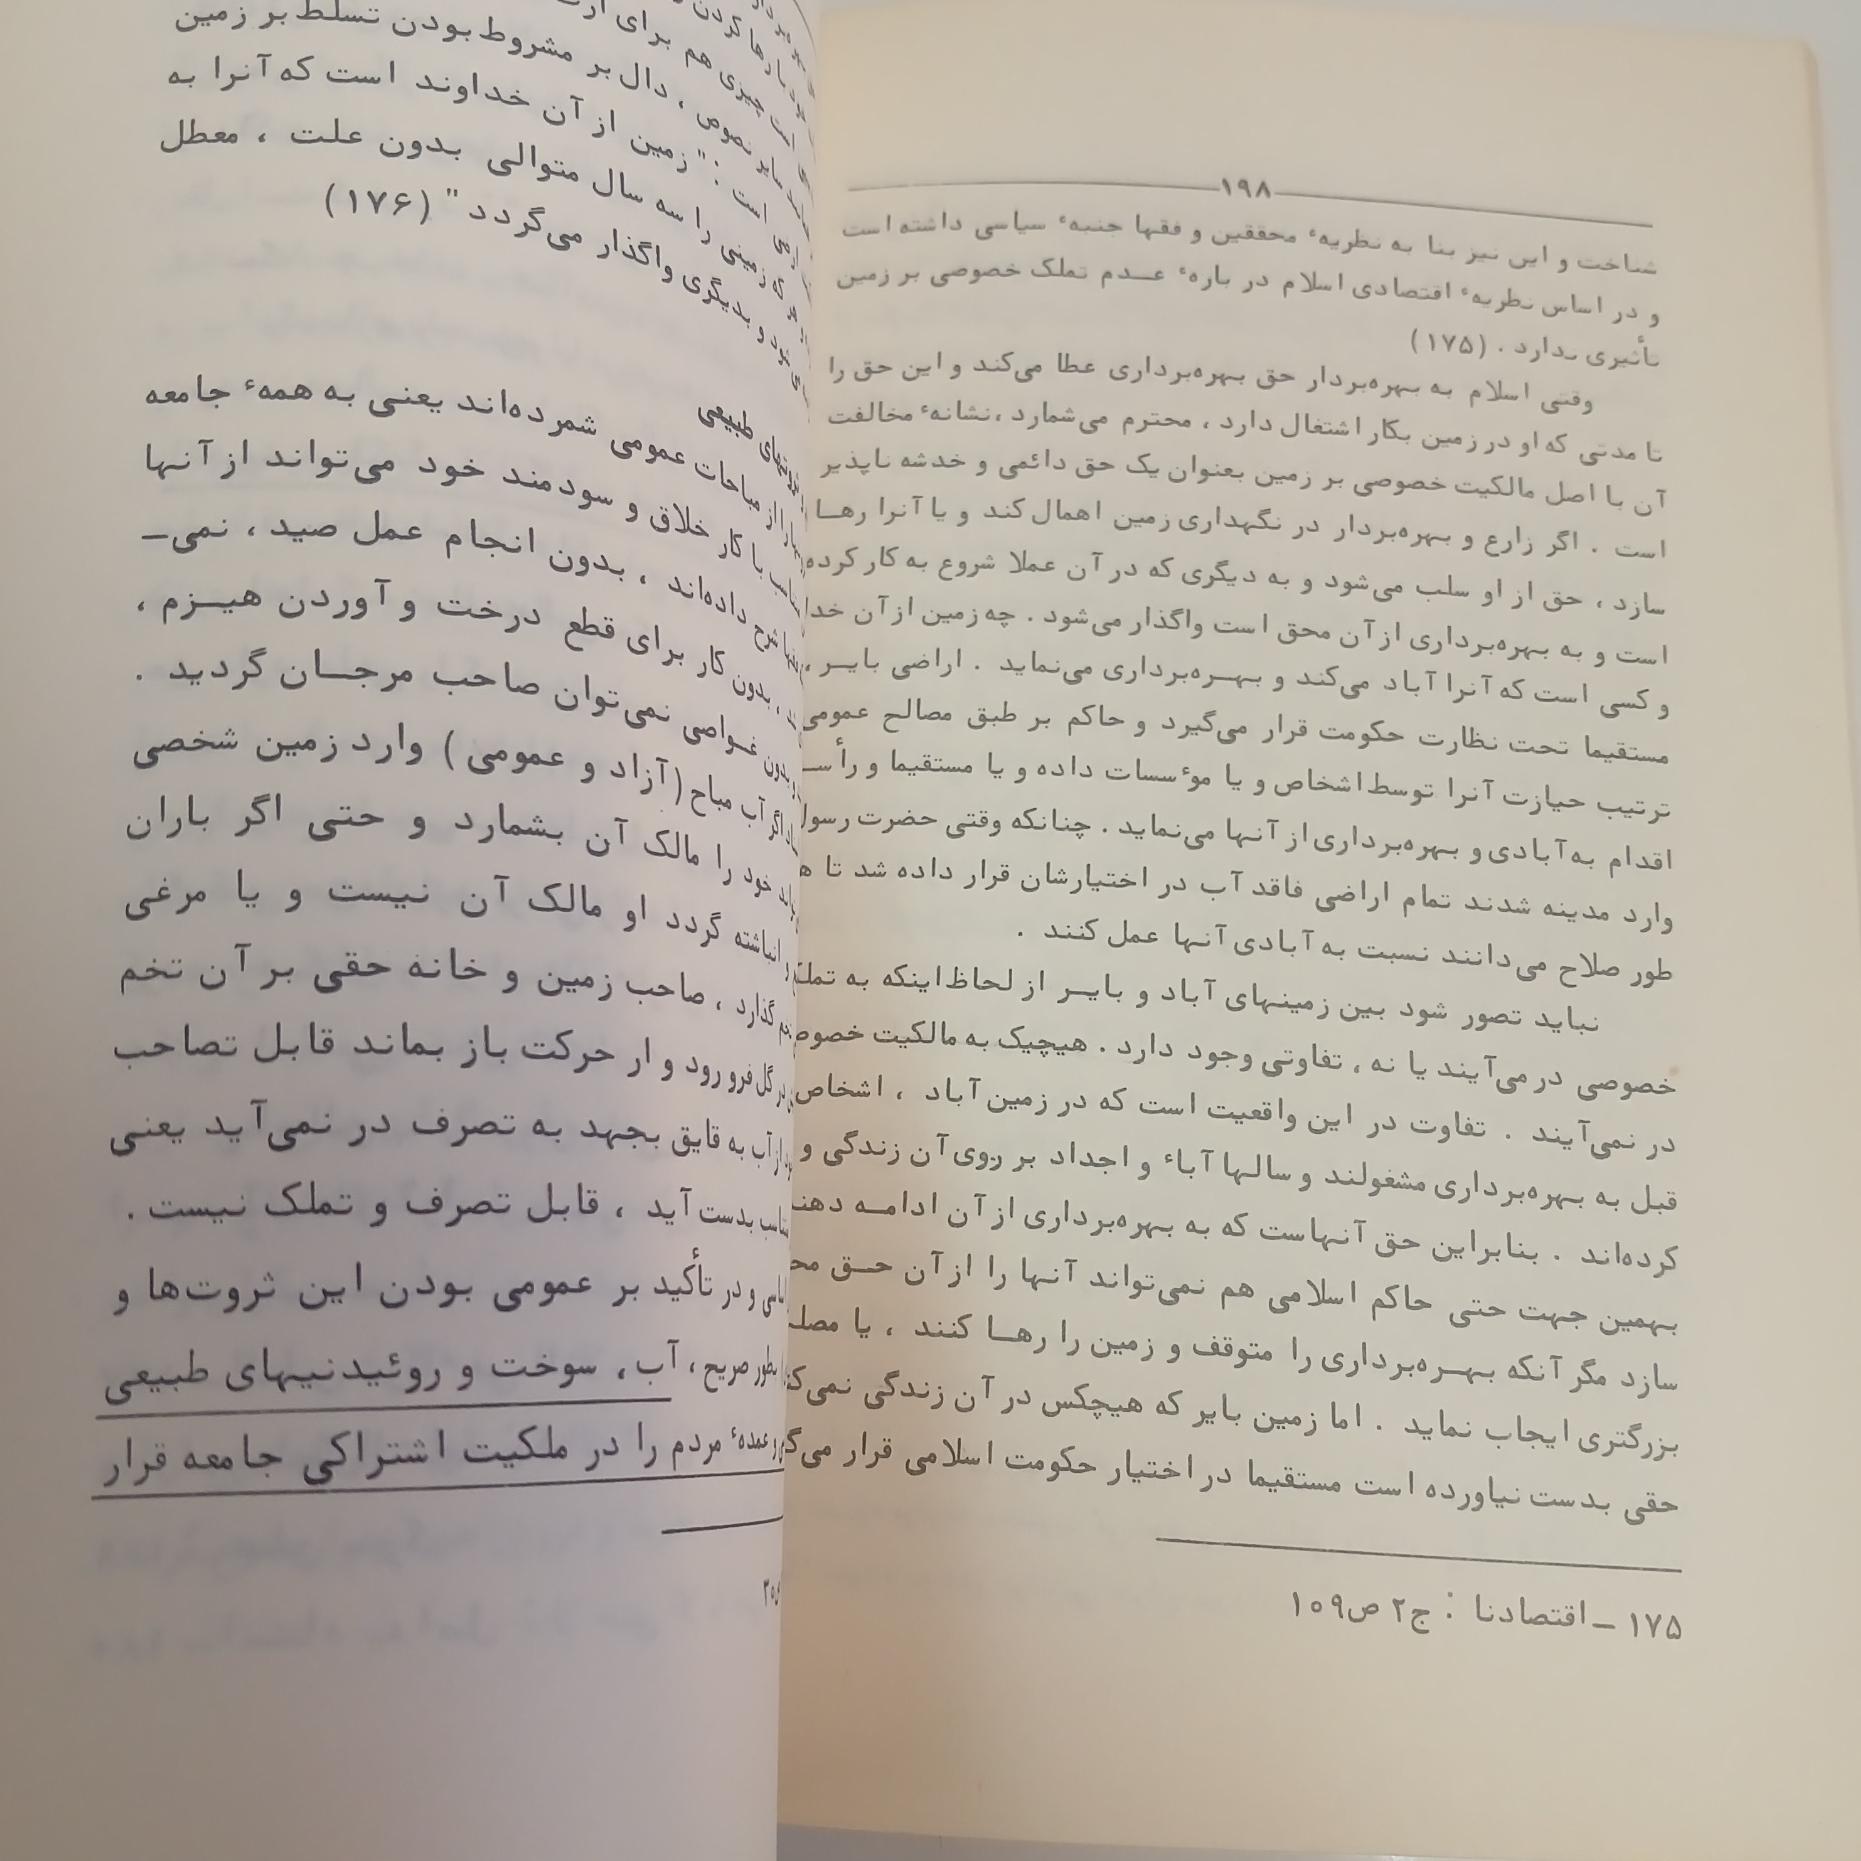 ۱۹۸
شناخت و این نیز بنا به نظریهٔ محققین و فقها جنبهٔ سیاسی داشته است
و در اساس نظریهٔ اقتصادی اسلام در بارهٔ عـدم تملک خصوصی بر زمین
تأثیری ندارد . (۱۷۵)
وقتی اسلام به بهره‌بردار حق بهره‌برداری عطا می‌کند و این حق را
تا مدتی که او در زمین بکار اشتغال دارد ، محترم می‌شمارد ، نشانهٔ مخالفت
آن با اصل مالکیت خصوصی بر زمین بعنوان یک حق دائمی و خدشه ناپذیر
است . اگر زارع و بهره‌بردار در نگهداری زمین اهمال کند و یا آنرا رهـا
سازد ، حق از او سلب می‌شود و به دیگری که در آن عملا شروع به کار کرده
است و به بهره‌برداری از آن محق است واگذار می‌شود . چه زمین از آن خدا
و کسی است که آنرا آباد می‌کند و بهـره‌برداری می‌نماید . اراضی بایـر ،
مستقیما تحت نظارت حکومت قرار می‌گیرد و حاکم بر طبق مصالح عمومی
ترتیب حیازت آنرا توسط اشخاص و یا موٴسسات داده و یا مستقیما و رأسـ
اقدام به آبادی و بهره‌برداری از آنها می‌نماید . چنانکه وقتی حضرت رسول
وارد مدینه شدند تمام اراضی فاقد آب در اختیارشان قرار داده شد تا
طور صلاح می‌دانند نسبت به آبادی آنها عمل کنند .
نباید تصور شود بین زمینهای آباد و بایـر از لحاظ اینکه به تملک
خصوصی در می‌آیند یا نه ، تفاوتی وجود دارد . هیچیک به مالکیت خصوص
در نمی‌آیند . تفاوت در این واقعیت است که در زمین آباد ، اشخاص
قبل به بهره‌برداری مشغولند و سالها آباء و اجداد بر روی آن زندگی و
کرده‌اند . بنابراین حق آنهاست که به بهره‌برداری از آن ادامـه دهند
بهمین جهت حتی حاکم اسلامی هم نمی‌تواند آنها را از آن حـق
سازد مگر آنکه بهـره‌برداری را متوقف و زمین را رهـا کنند ، یا
بزرگتری ایجاب نماید . اما زمین بایر که هیچکس در آن زندگی
حقی بدست نیاورده است مستقیما در اختیار حکومت اسلامی قرار
۱۷۵ ــ اقتصادنا : ج۲ ص۱۰۹
است چیزی هم برای
سایر نصوص ، دال بر مشروط بودن تسلط بر زمین
است : " زمین از آن خداوند است که آنرا به
که زمینی را سه سال متوالی بدون علت ، معطل
و بدیگری واگذار می‌گردد " (۱۷۶)
طبیعی
را از مباحات عمومی شمرده‌اند یعنی به همهٔ جامعه
با کار خلاق و سودمند خود می‌تواند از آنها
شرح داده‌اند ، بدون انجام عمل صید ، نمی‌ـ
، بدون کار برای قطع درخت و آوردن هیـزم ،
بدون غـواصی نمی‌توان صاحب مرجـان گردید .
اگر آب مباح ( آزاد و عمومی ) وارد زمین شخصی
خود را مالک آن بشمارد و حتی اگر باران
انباشته گردد او مالک آن نیست و یا مرغی
گذارد ، صاحب زمین و خانه حقی بر آن تخم
در گل فرو رود و از حرکت باز بماند قابل تصاحب
از آب به قایق بجهد به تصرف در نمی‌آید یعنی
بدست آید ، قابل تصرف و تملک نیست .
و در تأکید بر عمومی بودن این ثروت‌ها و
بطور صریح ، آب ، سوخت و روئیدنیهای طبیعی
و عمدهٔ مردم را در ملکیت اشتراکی جامعه قرار